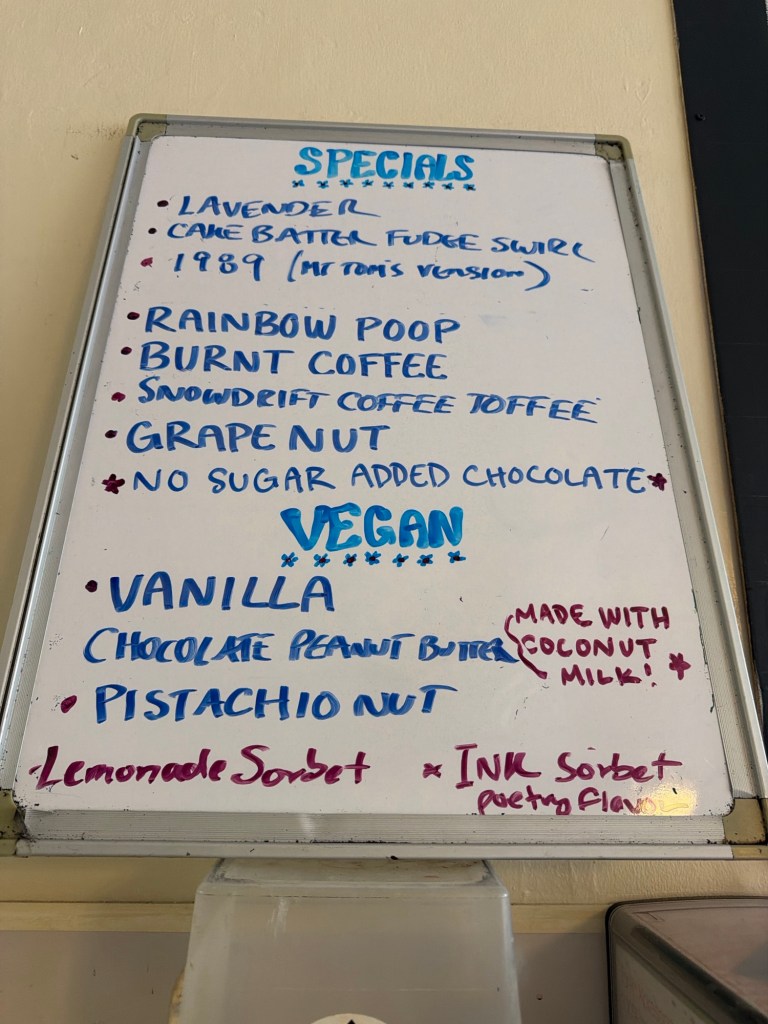 SPECIALS
• LAVENDER
• CAKE BATTER FUDGE SWIRL
• 1989 (Mr Tom's Version)
• RAINBOW POOP
• BURNT COFFEE
• SNOWDRIFT COFFEE TOFFEE
• GRAPE NUT
* NO SUGAR ADDED CHOCOLATE *
VEGAN
• VANILLA
CHOCOLATE PEANUT BUTTER
MADE WITH
COCONUT
MILK! *
• PISTACHIO NUT
Lemonade Sorbet
* INK Sorbet
poetry flavor